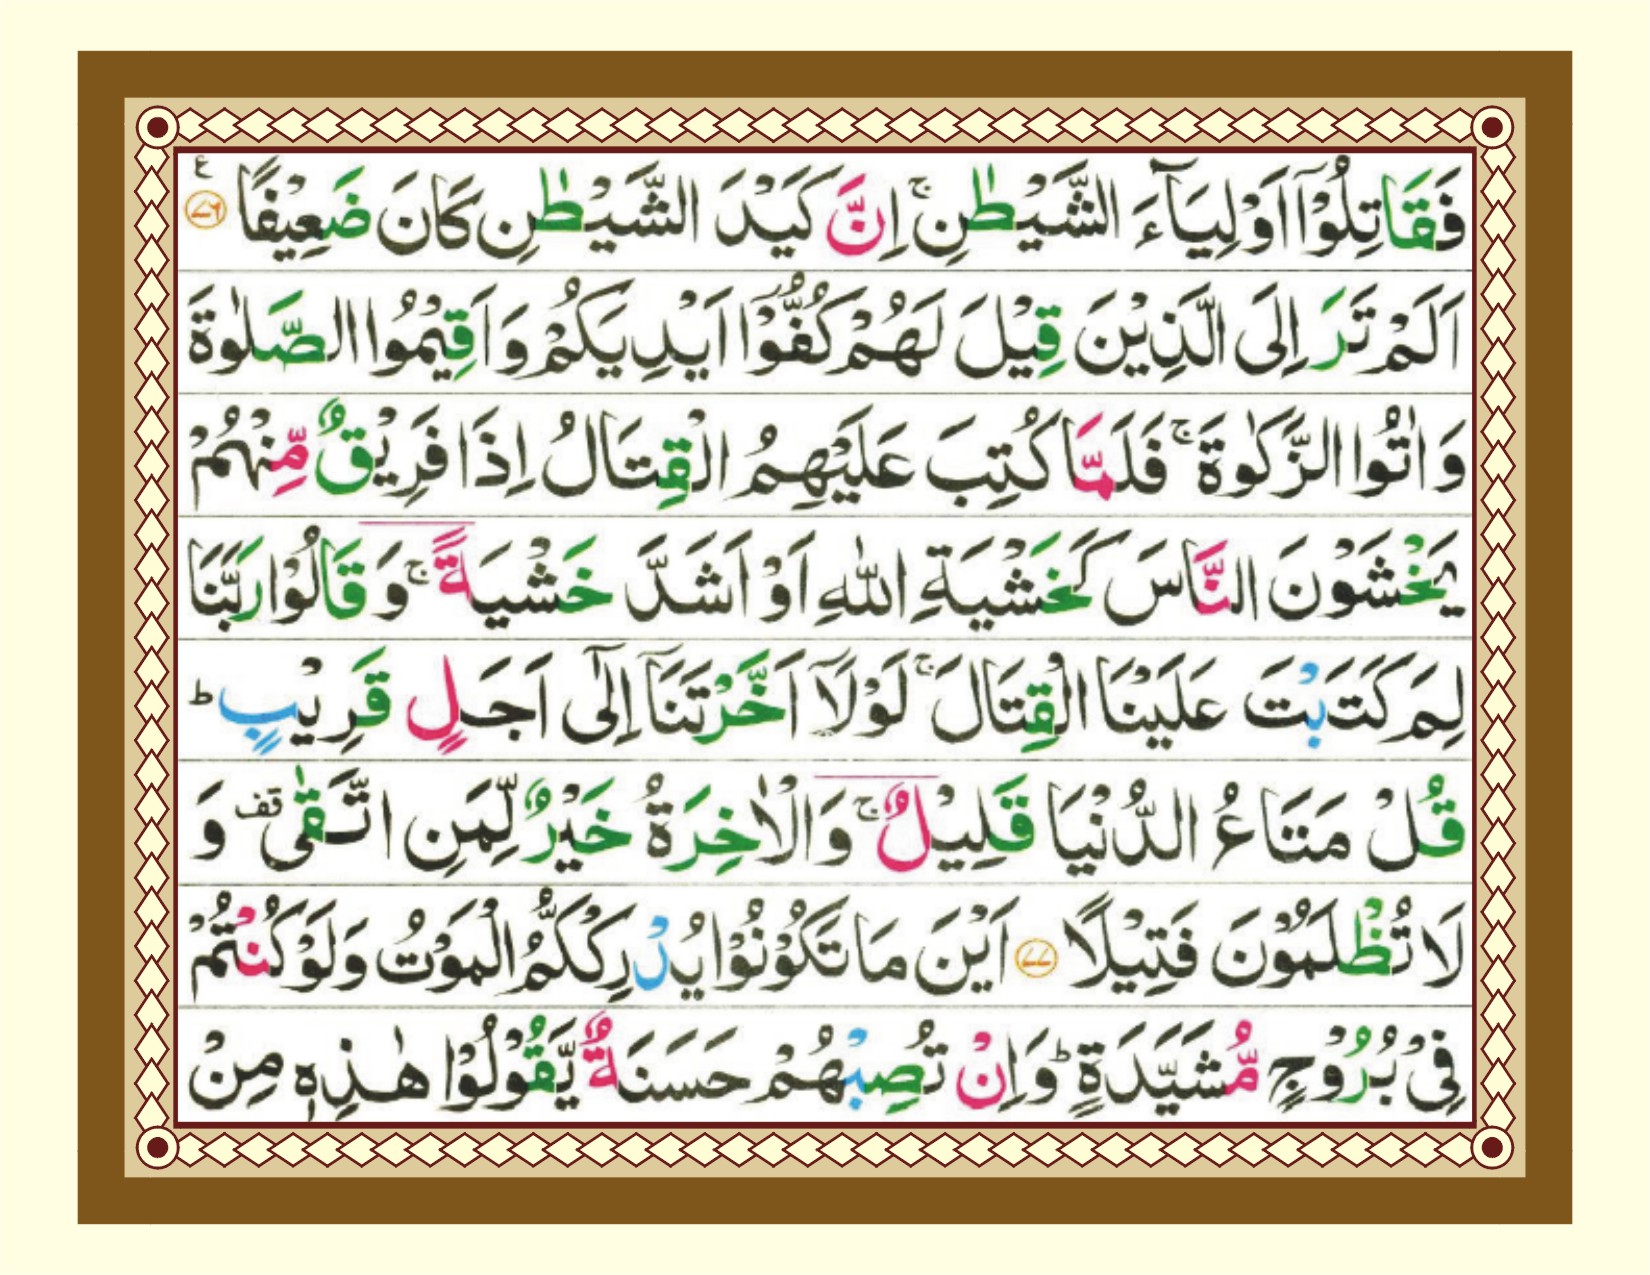 فَقَاتِلُوْۤا اَوْلِيَآءَ الشَّيْطٰنِ ۚ اِنَّ كَيْدَ الشَّيْطٰنِ كَانَ ضَعِيْفًا ﴿۷۶﴾ ع
اَلَمْ تَرَ اِلَى الَّذِيْنَ قِيْلَ لَهُمْ كُفُّوْۤا اَيْدِيَكُمْ وَاَقِيْمُوا الصَّلٰوةَ
وَاٰتُوا الزَّكٰوةَ ۚ فَلَمَّا كُتِبَ عَلَيْهِمُ الْقِتَالُ اِذَا فَرِيْقٌ مِّنْهُمْ
يَخْشَوْنَ النَّاسَ كَخَشْيَةِ اللّٰهِ اَوْ اَشَدَّ خَشْيَةً ۚ وَقَالُوْا رَبَّنَا
لِمَ كَتَبْتَ عَلَيْنَا الْقِتَالَ ۚ لَوْلَاۤ اَخَّرْتَنَاۤ اِلٰۤى اَجَلٍ قَرِيْبٍ ؕ
قُلْ مَتَاعُ الدُّنْيَا قَلِيْلٌ ۚ وَالْاٰخِرَةُ خَيْرٌ لِّمَنِ اتَّقٰى قف وَ
لَا تُظْلَمُوْنَ فَتِيْلًا ﴿۷۷﴾ اَيْنَ مَا تَكُوْنُوْا يُدْرِكْكُّمُ الْمَوْتُ وَلَوْ كُنْتُمْ
فِىْ بُرُوْجٍ مُّشَيَّدَةٍ ؕ وَاِنْ تُصِبْهُمْ حَسَنَةٌ يَّقُوْلُوْا هٰذِهٖ مِنْ